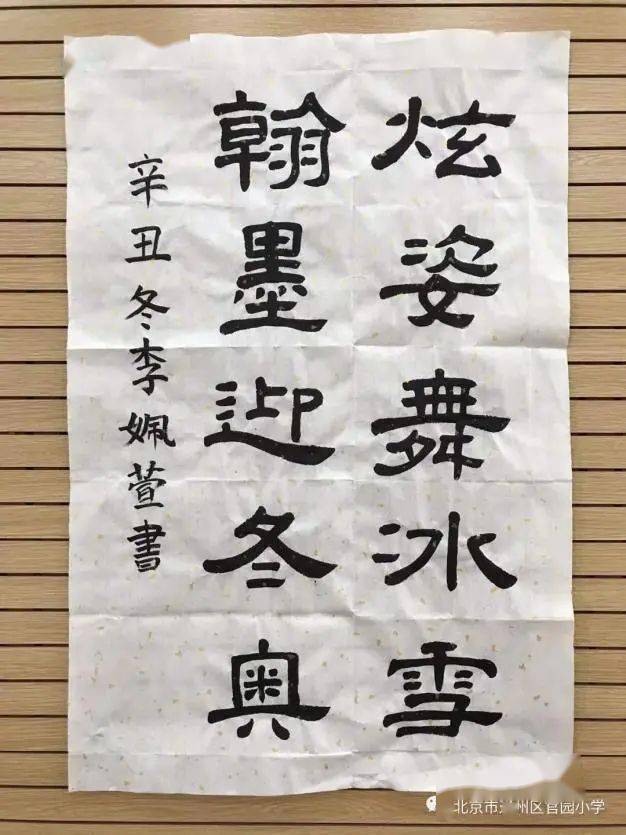 炫姿舞冰雪
翰墨迎冬奥
辛丑冬李姵萱書
北京市 州区官园小学